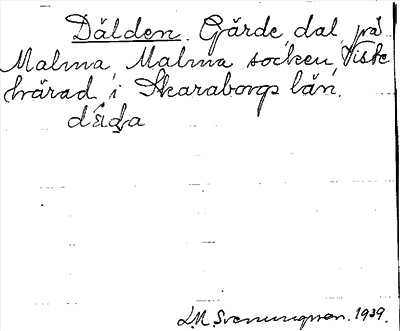 Dälden. Gärde, dal, på
Malma, Malma socken, Viste
härad, i Skaraborgs län.
L.M. Svenungsson. 1939.